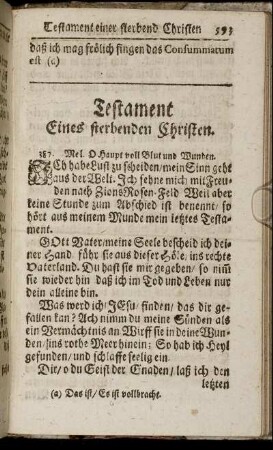 Testament einer sterbend Christen 593
daß ich mag frölich singen das Consummatum
est (a)
Testament
Eines sterbenden Christen.
387. Mel. O Haupt voll Blut und Wunden.
ICh habe Lust zu scheiden/mein Sinn geht
aus der Welt. Ich sehne mich mit Freu-
den nach Zions Rosen-Feld Weil aber
keine Stunde zum Abschied ist benennt/so
hört aus meinem Munde mein letztes Testa-
ment.
GOtt Vater/meine Seele bescheid ich dei-
ner Hand führ sie aus dieser Höle, ins rechte
Vaterland. Du hast sie mir gegeben/ so nim̃
sie wieder hin daß ich im Tod und Leben nur
dein alleine bin.
Was werd ich/JEsu/finden/das dir ge-
fallen kan? Ach nimm du meine Sünden als
ein Vermächtnis an Wirff sie in deine Wun-
den/ins rothe Meer hinein; So hab ich Heyl
gefunden/und schlaffe seelig ein.
Dir/o du Geist der Gnaden/laß ich den
letzten
(a) Das ist/Es ist vollbracht.